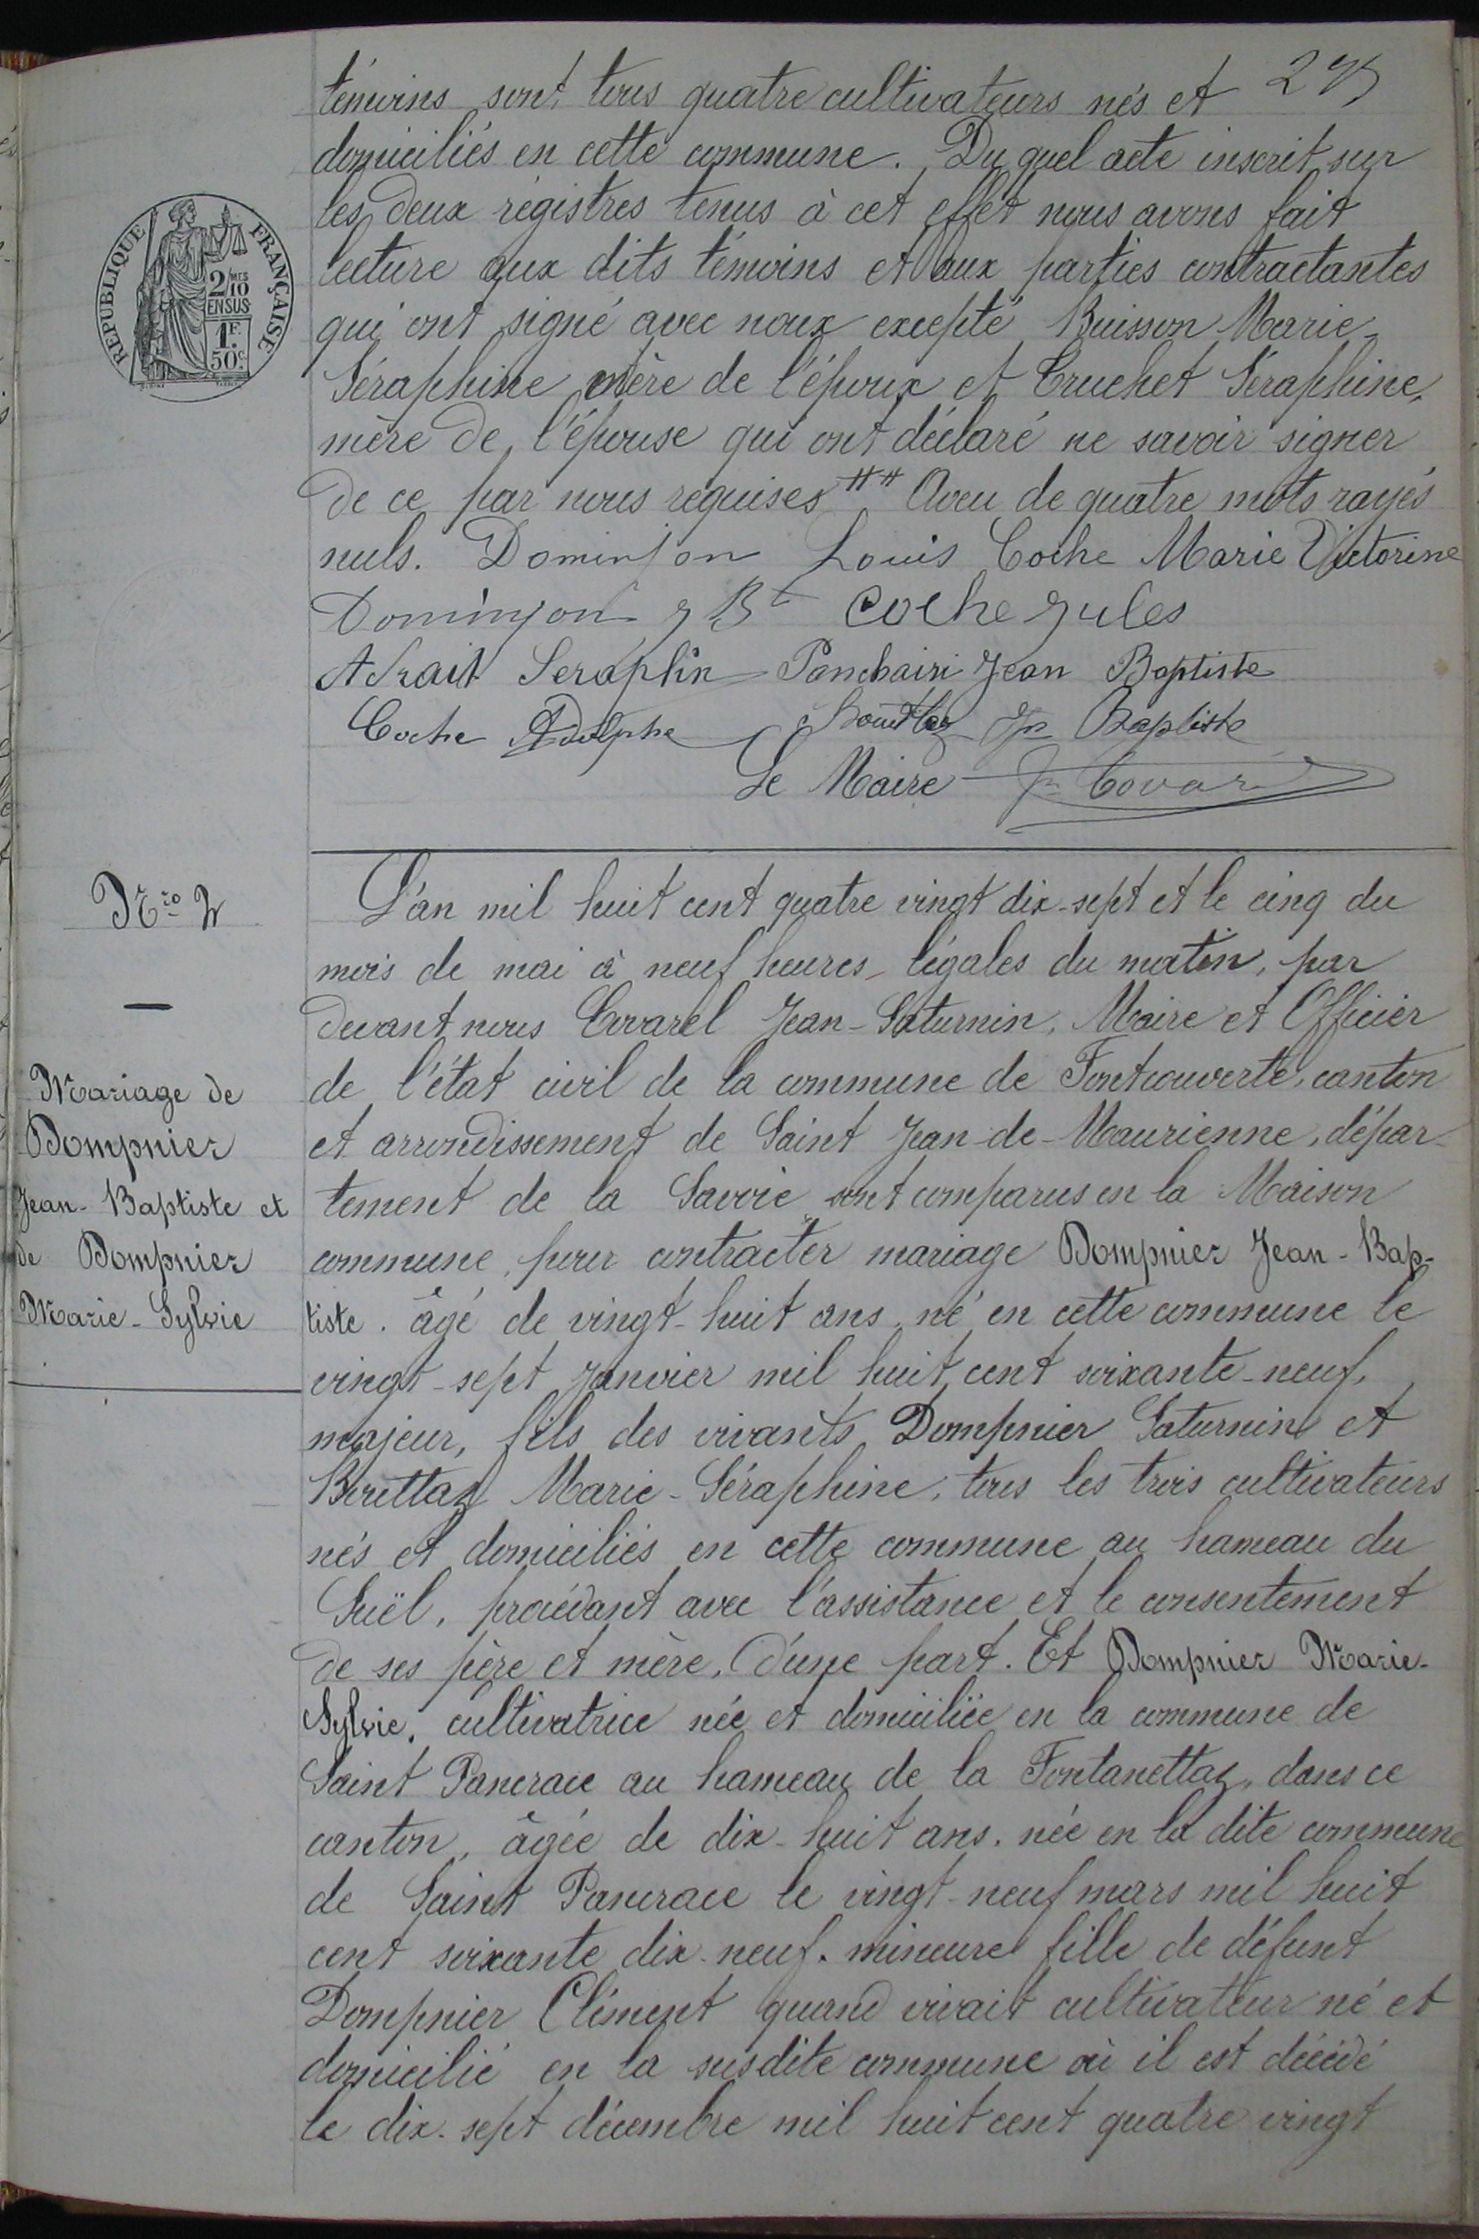 témoins sont tous quatre cultivateurs nés et
domiciliés en cette commune. Du quel acte inscrit sur
les deux régistres tenus à cet effet nous avons fait
lecture aux dits témoins et aux parties contractantes
qui ont signé avec nous excepté Buisson Marie-
Séraphine mère de l'époux et Truchet Séraphine,
mère de l'épouse qui ont déclaré ne savoir signer
de ce par nous requises Aveu de quatre mots rayés
nuls. Dominjon Louis Coche Marie Victorine
Dominjon J Bte Coche Jules
Séraphin Jean Baptiste
Coche Adolphe Bouttaz Jn Baptiste
Le Maire Jn Covarel
REPUBLIQUE FRANÇAISE
2 MES
10
EN SUS
1F.
50c.
Nro 2
Mariage de
Dompnier
Jean-Baptiste et
de Dompnier
Marie-Sylvie
L'an mil huit cent quatre vingt dix-sept et le cinq du
mois de mai à neuf heures légales du matin, par
devant nous Covarel Jean-Saturnin, Maire et Officier
de l'état civil de la commune de Fontcouverte, canton
et arrondissement de Saint Jean-de-Maurienne, dépar-
tement de la Savoie sont comparus en la Maison
commune, pour contracter mariage Dompnier Jean-Bap-
tiste. âgé de vingt-huit ans, né en cette commune le
vingt-sept janvier mil huit cent soixante-neuf,
majeur, fils des vivants Dompnier Saturnin et
Bouttaz Marie-Séraphine, tous les trois cultivateurs
nés et domiciliés en cette commune au hameau du
Suël, procédant avec l'assistance et le consentement
de ses père et mère, d'une part. Et Dompnier Marie-
Sylvie, cultivatrice née et domiciliée en la commune de
Saint Pancrace au hameau de la Fontanettaz, dans ce
canton, âgée de dix-huit ans. née en la dite commune
de Saint Pancrace le vingt-neuf mars mil huit
cent soixante dix-neuf. mineure fille de défunt
Dompnier Clément quand vivait cultivateur né et
domicilié en la susdite commune où il est décédé
le dix-sept décembre mil huit cent quatre vingt